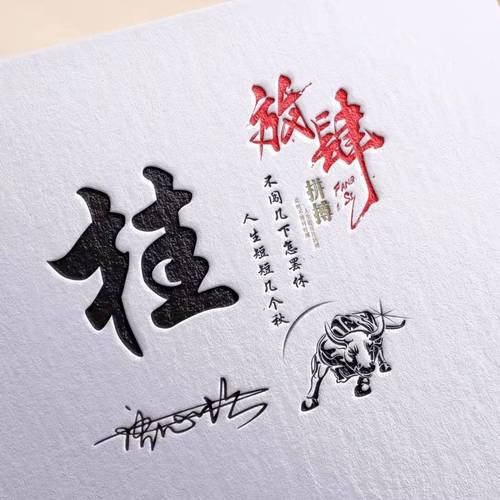 放肆
FANG
SI
拼搏
不闯几下怎罢休
人生短短几个秋
桂